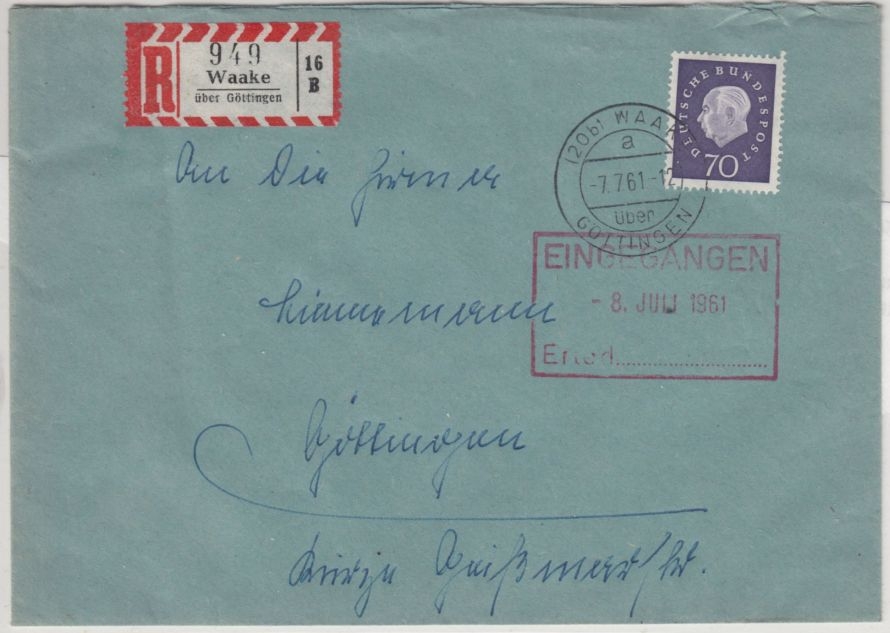 R
949
Waake
über Göttingen
16
B
DEUTSCHE BUNDESPOST
70
(20b) WAAKE
a
-7.7.61-12
über
GÖTTINGEN
EINGEGANGEN
- 8. JULI 1961
Erled.
An die Firma
Göttingen
Kurze Geißmarstr.